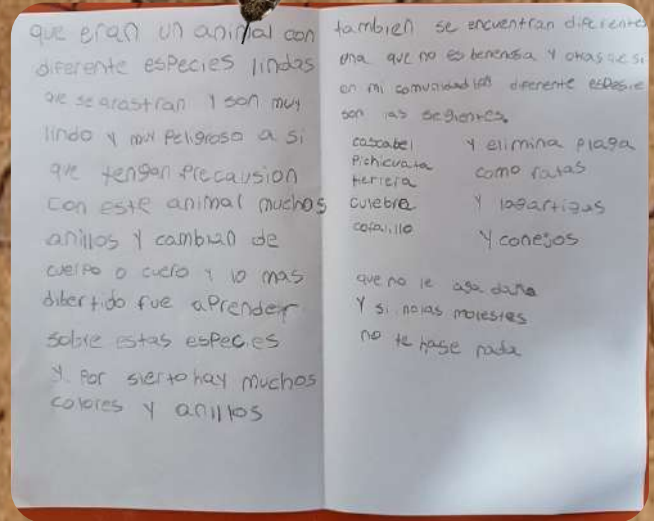 que eran un animal con
diferente especies lindas
qe se arastran y son muy
lindo y muy peligroso a si
que tengan precausion
con este animal muchos
anillos y cambian de
cuerpo o cuero y lo mas
dibertido fue aprender
sobre estas especies
y por sierto hay muchos
colores y anillos
tambien se encuentran diferente
una que no es benenosa y otras qe si
en mi comunidad diferente espesie
son las segientes
cascabel
pichicuata
culebra
coralillo
y elimina plaga
como ratas
y lagartigas
y conejos
que no le aga daño
y si nolas molestes
no te hase nada